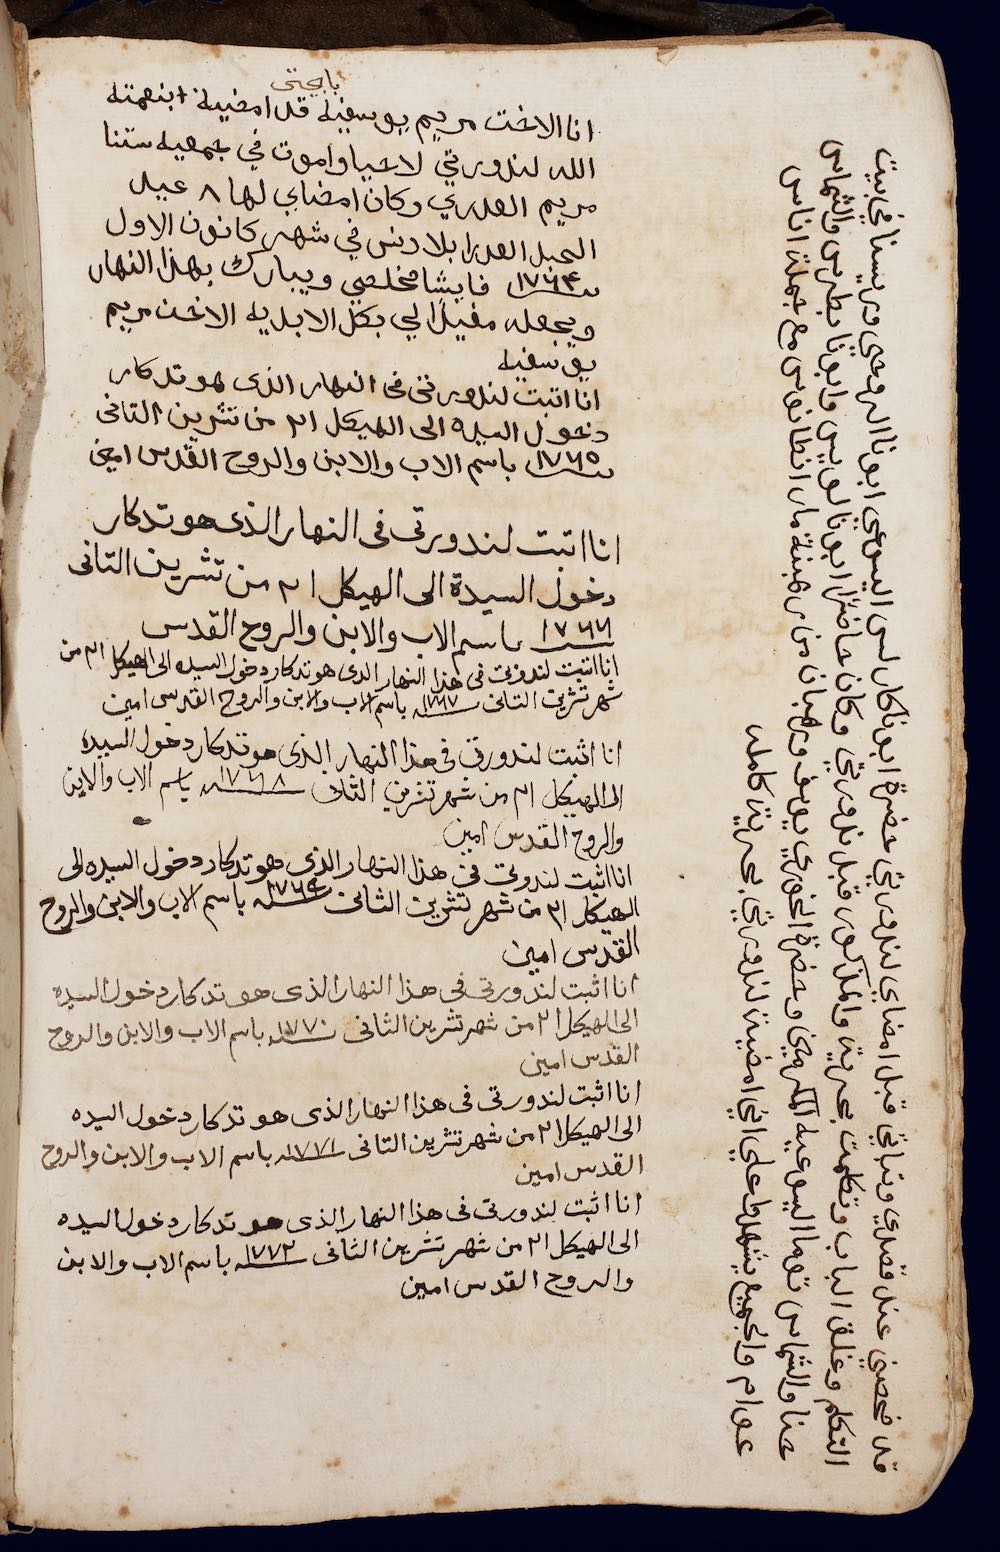 باجتى
انا الاخت مريم يوسفيه قد امضيت بنعمته
الله لندورتي لاحيا واموت في جمعيه ستنا
مريم العدرى وكان امضاي لها ٨ عيد
الحبل العدرا بلا دنس في شهر كانون الاول
سنة ١٧٦٤ فايشا مخلصي ويبارك بهذا النهار
ويجعله مفيدًا لي بكل الابديه الاخت مريم
يوسفيه
انا اتبت لندورتى فى النهار الذى هو تدكار
دخول السيده الى الهيكل ٢١ من تشرين التانى
سنة ١٧٦٥ باسم الاب والابن والروح القدس امين
انا اتبت لندورتى فى النهار الذى هو تدكار
دخول السيدة الى الهيكل ٢١ من تشرين التانى
سنة ١٧٦٦ باسم الاب والابن والروح القدس
انا اتبت لندورتى فى هذا النهار الذى هو تدكار دخول السيده الى الهيكل ٢١ من
شهر تشرين التانى سنة ١٧٦٧ باسم الاب والابن والروح القدس امين
انا اثبت لندورتى فى هذا النهار الذى هو تدكار دخول السيده
الى الهيكل ٢١ من شهر تشرين الثانى سنة ١٧٦٨ باسم الاب والابن
والروح القدس امين
انا اثبت لندورتى فى هذا النهار الذى هو تدكار دخول السيده الى
الهيكل ٢١ من شهر تشرين الثانى سنة ١٧٦٩ باسم الاب والابن والروح
القدس امين
انا اثبت لندورتى فى هذا النهار الذى هو تدكار دخول السيده
الى الهيكل ٢١ من شهر تشرين الثانى سنة ١٧٧٠ باسم الاب والابن والروح
القدس امين
انا اثبت لندورتى فى هذا النهار الذى هو تدكار دخول السيده
الى الهيكل ٢١ من شهر تشرين التانى سنة ١٧٧١ باسم الاب والابن والروح
القدس امين
انا اثبت لندورتى فى هذا النهار الذى هو تدكار دخول السيده
الى الهيكل ٢١ من شهر تشرين الثانى سنة ١٧٧٢ باسم الاب والابن
والروح القدس امين
قد فحصني عند قصدي وتباتي قبل امضاي لندورتي حضرة ابونا كارلس اليسوعي ابونا الروحي وريسنا في بيت
التكلم وغلق الباب وتكلمت بحريت والمذكور قبل ندورتي وكان حاضرًا ابونا لويس وابونا بطرس والشماس
حنا والشماس توما اليسوعيه المكرمين وحضرة الخوري يوسف ورهبان من رهبنة مار انطانوس مع جملة اناس
عوام والجميع يشهدوا علي اني امضيت لندورتي بحريت كامله